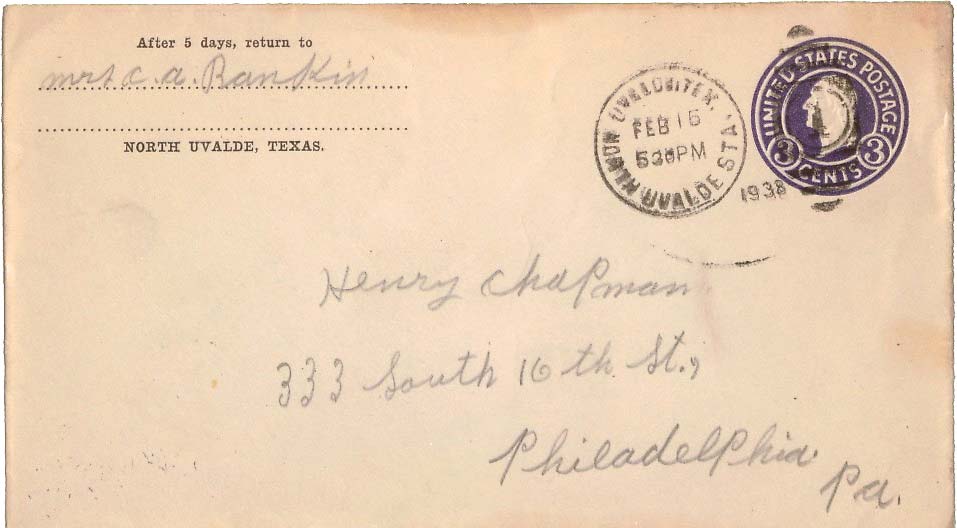 After 5 days, return to
mrs c. a. Rankin
NORTH UVALDE, TEXAS.
UVALDE, TEX.
FEB 16
530PM
NORTH UVALDE STA.
1938
UNITED STATES POSTAGE
3 CENTS 3
Henry Chapman
333 South 16 th St.,
Philadelphia
Pa.